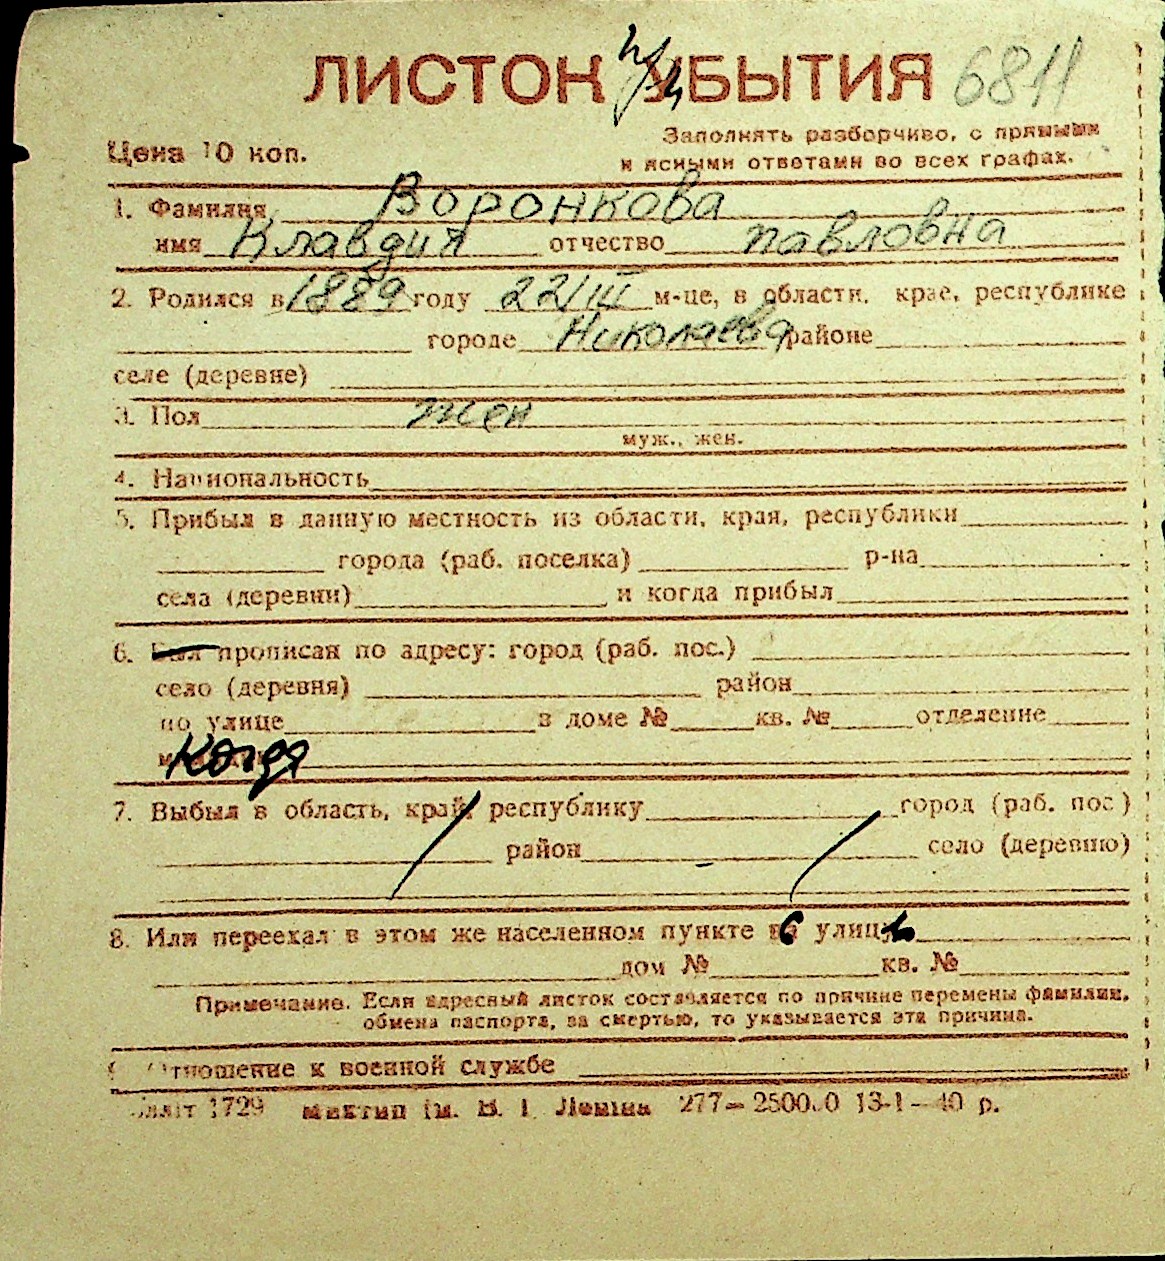 ЛИСТОК УБЫТИЯ 6811
Цена 10 коп.
Заполнять разборчиво, с прямыми
и ясными ответами во всех графах.
1. Фамилия Воронкова
имя Клавдия отчество Павловна
2. Родился в 1889 году 22/III м-це, в области, крае, республике
городе Николаева районе
селе (деревне)
3. Пол жен
муж., жен.
4. Национальность
5. Прибыл в данную местность из области, края, республики
города (раб. поселка) р-на
села (деревни) и когда прибыл
6. Был прописан по адресу: город (раб. пос.)
село (деревня) район
по улице в доме № кв. № отделение
Когда
7. Выбыл в область, край, республику город (раб. пос.)
район село (деревню)
8. Или переехал в этом же населенном пункте в улиц
дом № кв. №
Примечание. Если адресный листок составляется по причине перемены фамилии,
обмена паспорта, за смертью, то указывается эта причина.
Отношение к военной службе
1729 ім. В. І. Леніна 277— 13-1-40 р.